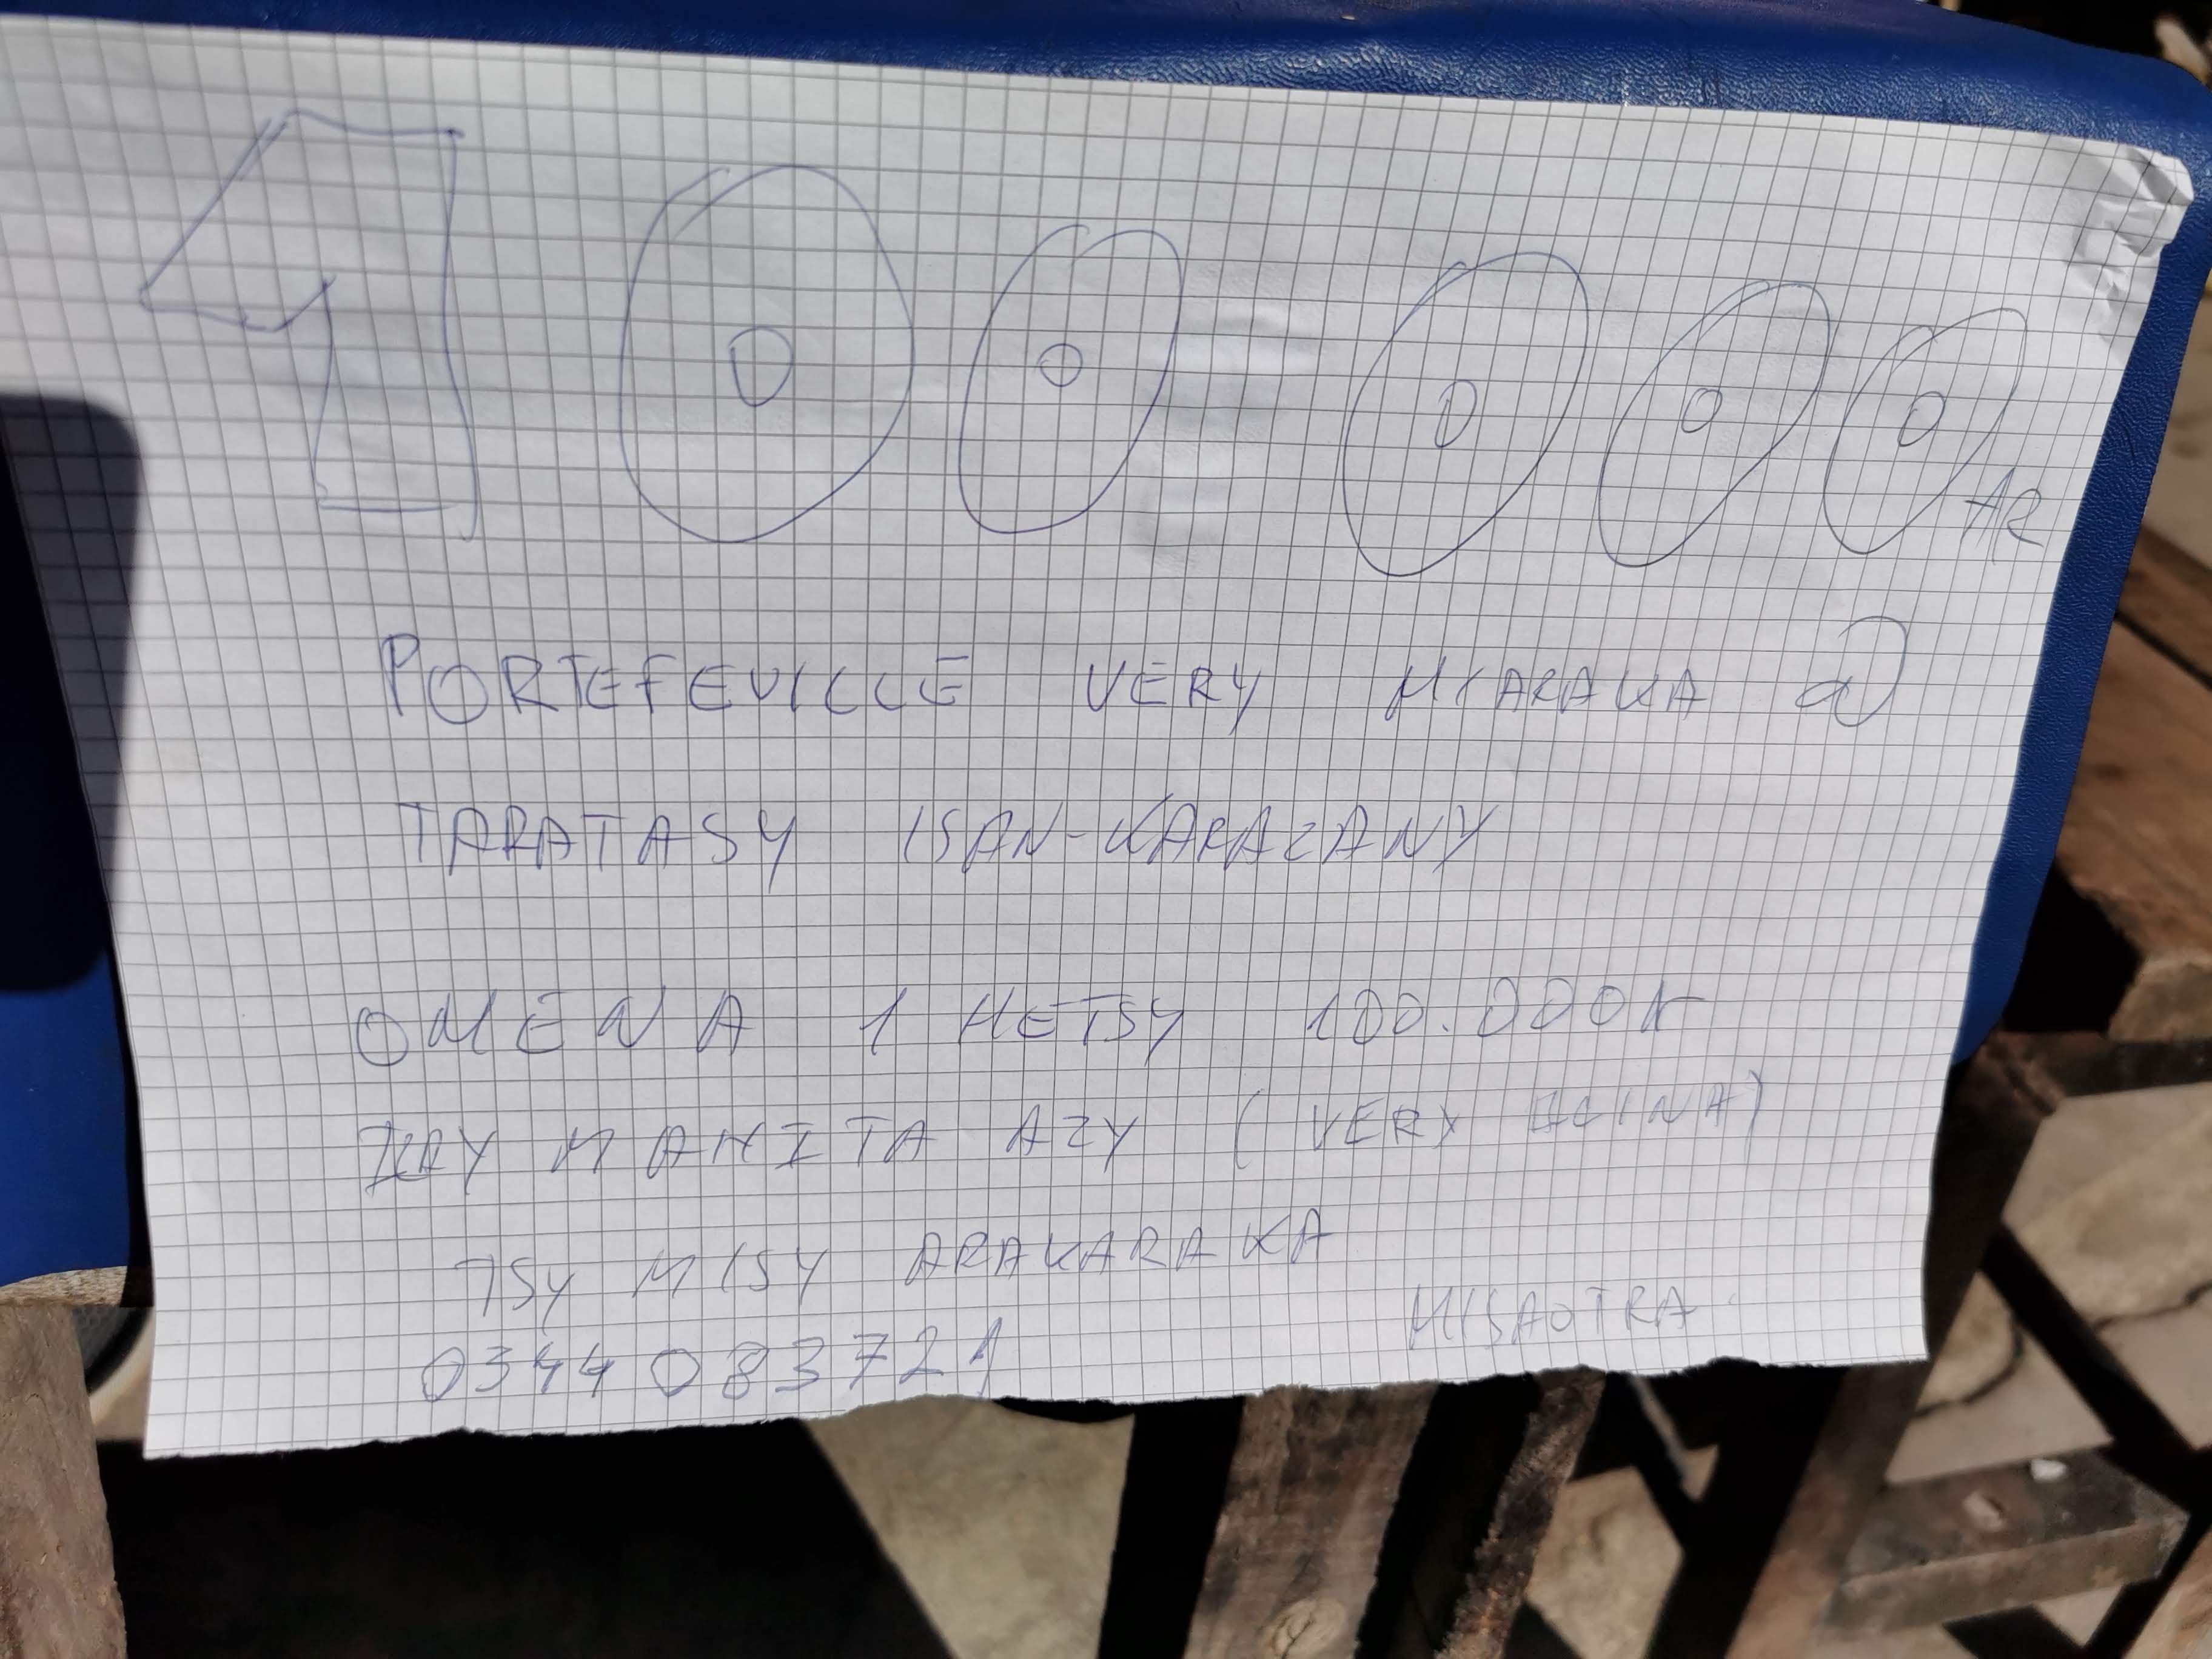 100 000 AR
PORTEFEUILLE VERY MIARAKA @
TARATASY ISAN-KARAZANY
OMENA 1 HETSY 100.000Ar
IZAY MAHITA AZY (VERY ALINA)
TSY MISY ARAKARAKA
MISAOTRA
0344083721